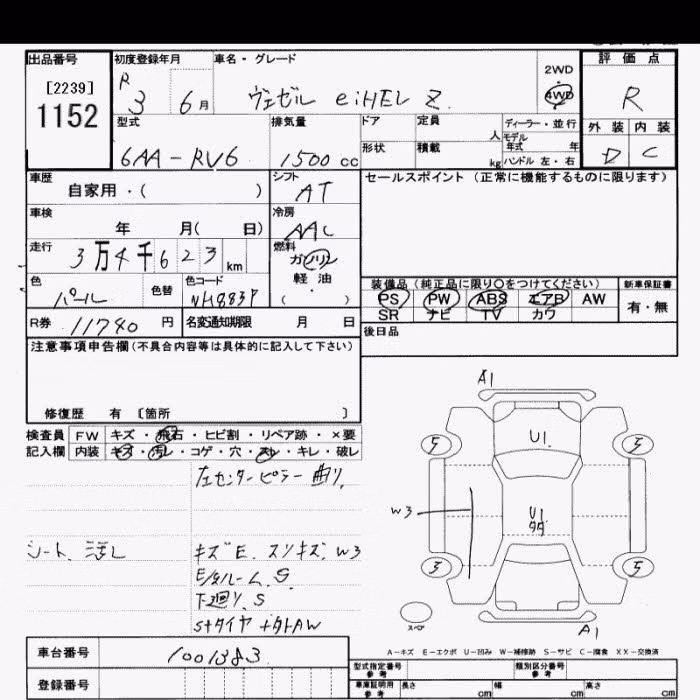 出品番号 初度登録年月 車名・グレード 評価点
[2239] R 2WD
1152 3 6月 ヴェゼル e:HEV Z 4WD R
型式 排気量 ドア 定員 人 ディーラー・並行 外装 内装
モデル年式 年
6AA-RV6 1500cc 形状 積載 kg ハンドル 左・右 D C
車歴 シフト セールスポイント(正常に機能するものに限ります)
自家用・( ) AT
車検 冷房
年 月( 日) AAC
走行 燃料
3万4千623km ガソリン
色 色替 色コード 軽油
パール NH883P ( ・ )
装備品(純正品に限り〇をつけてください) 新車保証書
PS PW ABS エアB AW 有・無
SR ナビ TV カワ
R券 11740円 名変通知期限 月 日 後日品
注意事項申告欄(不具合内容等は具体的に記入して下さい)
修復歴 有 〔箇所 〕
検査員 FW キズ・飛石・ヒビ割・リペア跡・×要
記入欄 内装 キズ・汚レ・コゲ・穴・スレ・キレ・破レ
左センターピラー曲り,
シート、汚レ キズE、スリキズ、W3
E/gルーム、S
下廻り、S
Sタイヤ+外AW
A1
U1.
5 5
W3
U1
3 5
スペア
A1
A-キズ E-エクボ U-凹み W-補修跡 S-サビ C-腐食 XX-交換済
車台番号 1001383
登録番号
型式指定番号 参考 類別区分番号 参考
車庫証明用 参考 長さ cm 幅 cm 高さ cm